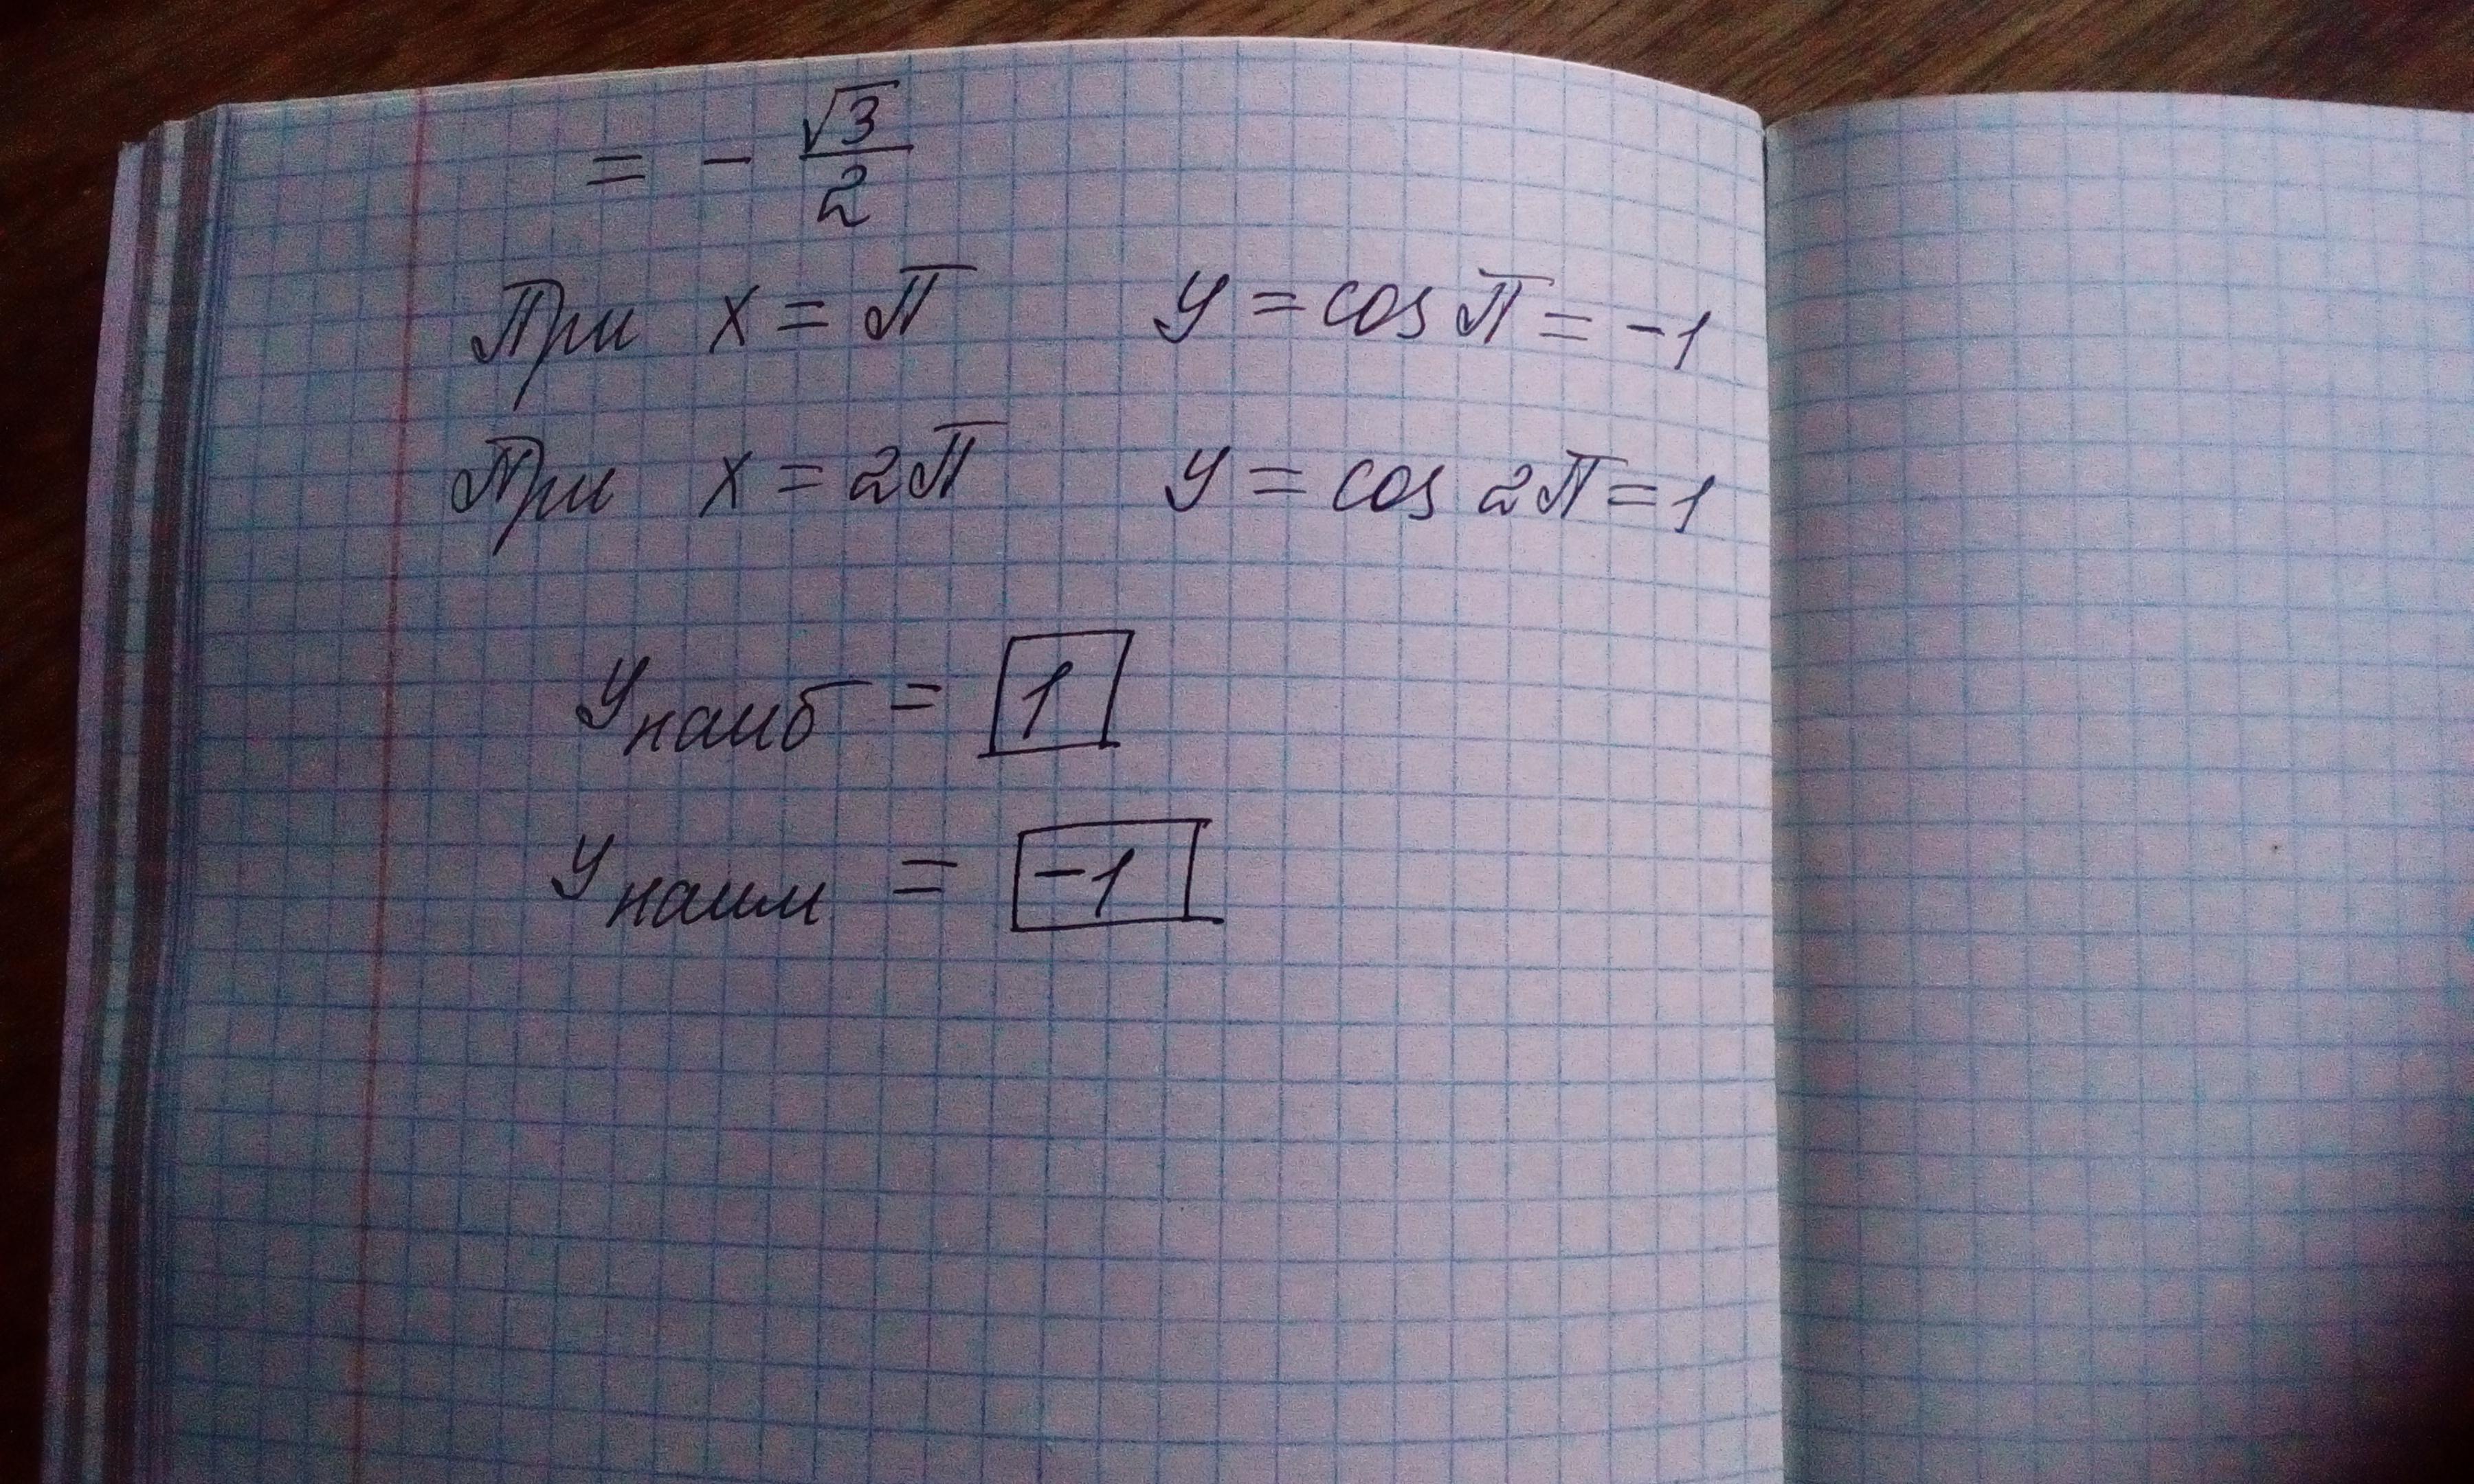 = - √3/2
При x = π y = cos π = -1
При x = 2π y = cos 2π = 1
y наиб = 1
y наим = -1